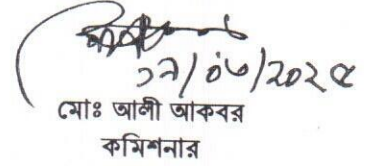 ১৭/০৬/২০২৫
মোঃ আলী আকবর
কমিশনার